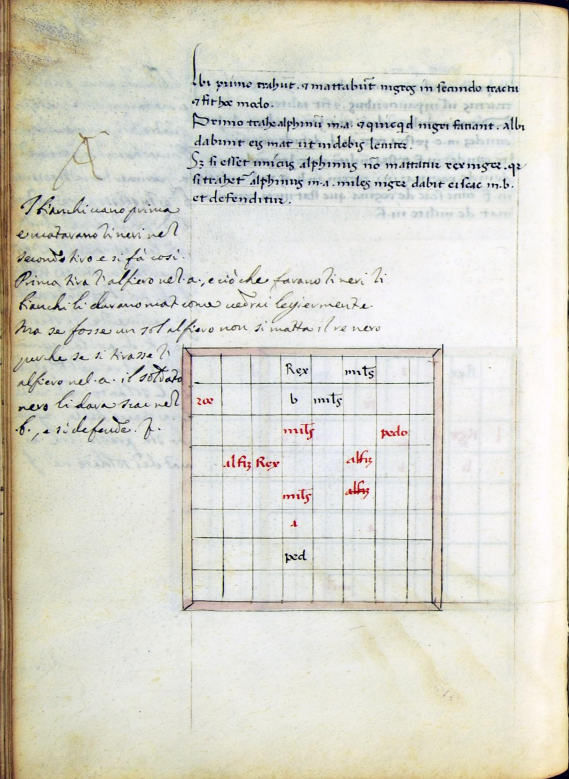 Albi primo trahūt. ⁊ mattabūt nigros in secundo tractu
⁊ fit hoc modo.
Primo trahe alphinū in .a. ⁊ quicqd nigri faciant. Albi
dabunt eis mat ut videbis leniter.
Sz si esset unicus alphinus nō mattatur rex niger. qr
si trahet alphinus in .a. miles niger dabit ei scac in .b.
et defenditur.
A
I bianchi vano prima
e matarano li neri nel
secondo tiro e si fà così.
Prima tira l'alfiero nel .a., e ciò che farano li neri li
bianchi li darano mat come vedrai legiermente.
Ma se fosse un sol alfiero non si matta il re nero
perche se si tirasse l'
alfiero nel .a. il soldato
nero li dara scac nel
b., e si defende.
Rex milꝭ
roc b milꝭ
milꝭ pedo
alfiz Rex alfiz
milꝭ alfiz
a
ped